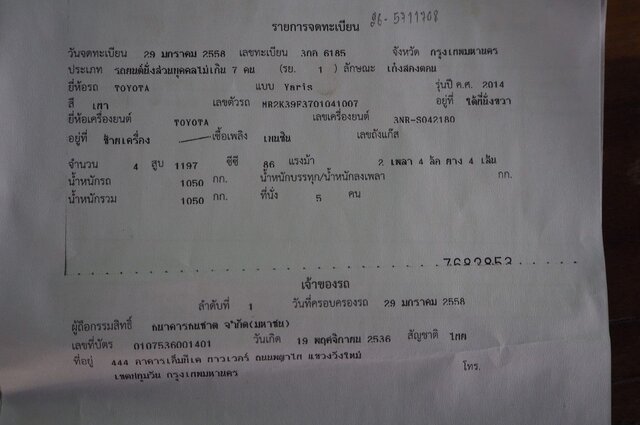 รายการจดทะเบียน 26-5711708
วันจดทะเบียน 29 มกราคม 2558 เลขทะเบียน 3กด 6185 จังหวัด กรุงเทพมหานคร
ประเภท รถยนต์นั่งส่วนบุคคลไม่เกิน 7 คน (รย. 1 ) ลักษณะ เก๋งสองตอน
ยี่ห้อรถ TOYOTA แบบ Yaris รุ่นปี ค.ศ. 2014
สี เทา เลขตัวรถ MR2K39F3701041007 อยู่ที่ ใต้ที่นั่งขวา
ยี่ห้อเครื่องยนต์ TOYOTA เลขเครื่องยนต์ 3NR-S042180
อยู่ที่ ซ้ายเครื่อง เชื้อเพลิง เบนซิน เลขถังแก๊ส
จำนวน 4 สูบ 1197 ซีซี 86 แรงม้า 2 เพลา 4 ล้อ ยาง 4 เส้น
น้ำหนักรถ 1050 กก. น้ำหนักบรรทุก/น้ำหนักลงเพลา กก.
น้ำหนักรวม 1050 กก. ที่นั่ง 5 คน
7682853
เจ้าของรถ
ลำดับที่ 1 วันที่ครอบครองรถ 29 มกราคม 2558
ผู้ถือกรรมสิทธิ์ ธนาคารธนชาต จำกัด(มหาชน)
เลขที่บัตร 0107536001401 วันเกิด 19 พฤศจิกายน 2536 สัญชาติ ไทย
ที่อยู่ 444 อาคารเอ็มบีเค ทาวเวอร์ ถนนพญาไท แขวงวังใหม่
เขตปทุมวัน กรุงเทพมหานคร โทร.